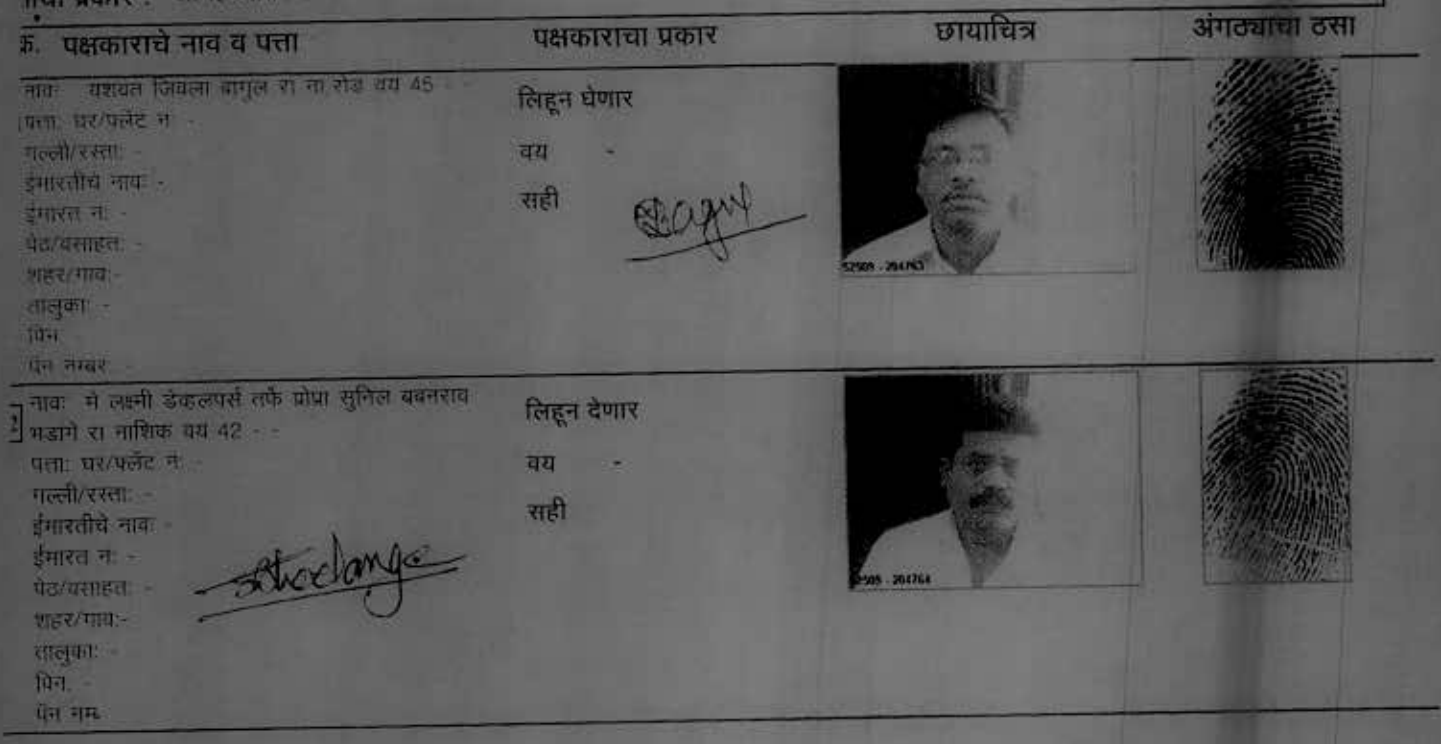 क्र. पक्षकाराचे नाव व पत्ता पक्षकाराचा प्रकार छायाचित्र अंगठ्याचा ठसा
नावः यशवंत जिवला बागुल रा ना रोड वय 45 - -
पत्ता: घर/फ्लॅट नं: -
गल्ली/रस्ता: -
ईमारतीचे नावः -
ईमारत नं: -
पेठ/वसाहत: -
शहर/गाव:-
तालुका: -
पिन
पॅन नम्बर: -
लिहून घेणार
वय -
सही
52509 - 204763
2
नावः मे लक्ष्मी डेव्हलपर्स तर्फे प्रोप्रा सुनिल बबनराव
भडांगे रा नाशिक वय 42 - -
पत्ता: घर/फ्लॅट नं: -
गल्ली/रस्ता: -
ईमारतीचे नावः -
ईमारत नं: -
पेठ/वसाहत: -
शहर/गाव:-
तालुका: -
पिन: -
पॅन नम्ब
लिहून देणार
वय -
सही
2509 - 204764